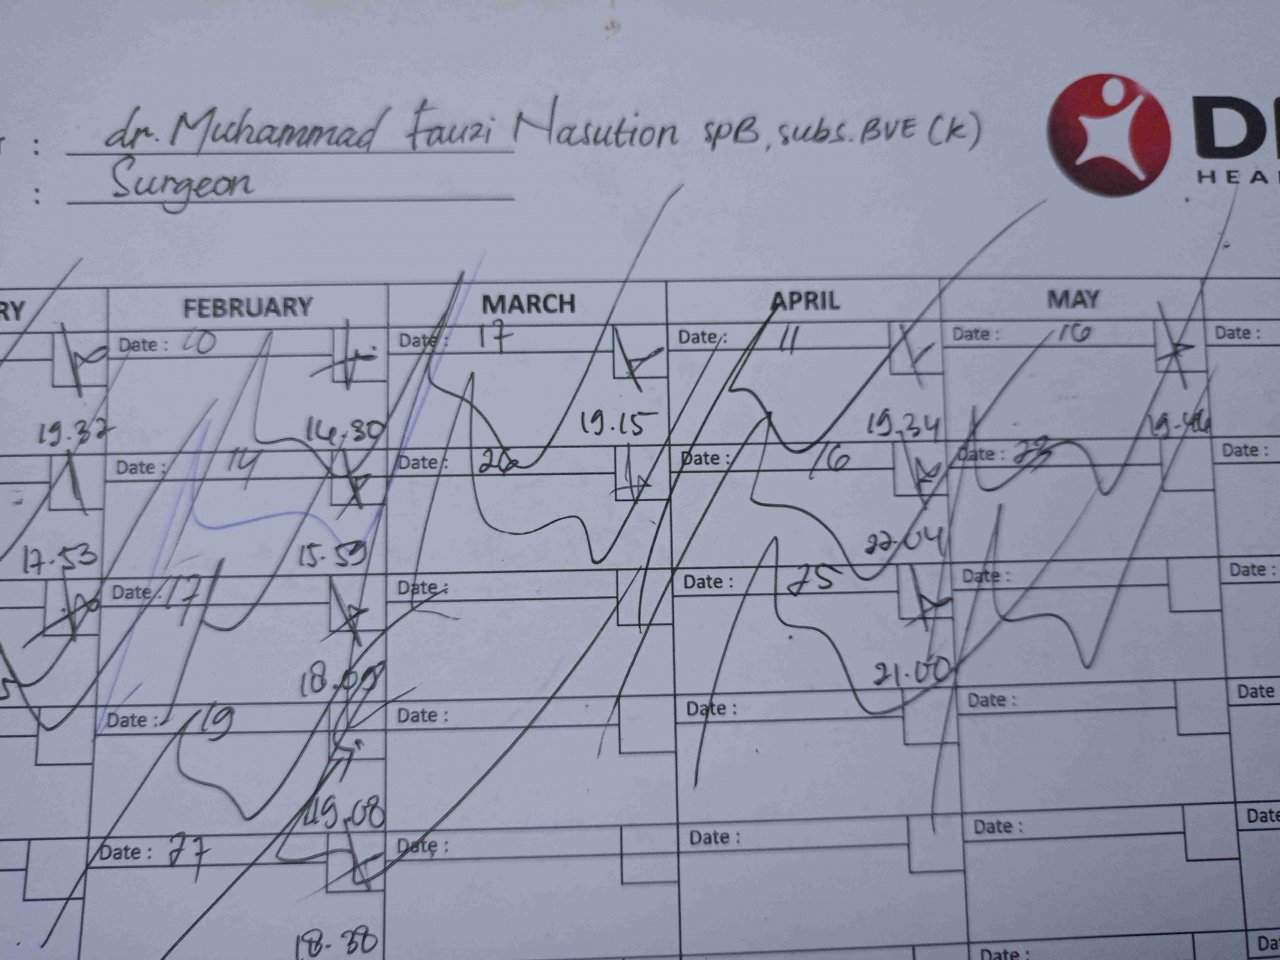 : dr. Muhammad Fauzi Nasution SpB, subs. BVE (K)
: Surgeon
HEA
RY FEBRUARY MARCH APRIL MAY
Date : 10 Date : 17 Date : 11 Date : 16 Date :
19.37 14.30 19.15 19.34
Date : 14 Date : 26 Date : 16 Date : 23 Date :
17.53 15.59 22.04
Date : 17 Date : Date : 25 Date : Date :
18.09 21.00
Date : 19 Date : Date : Date : Date
19.08
Date : 27 Date : Date : Date : Date
18.38
Date : Da